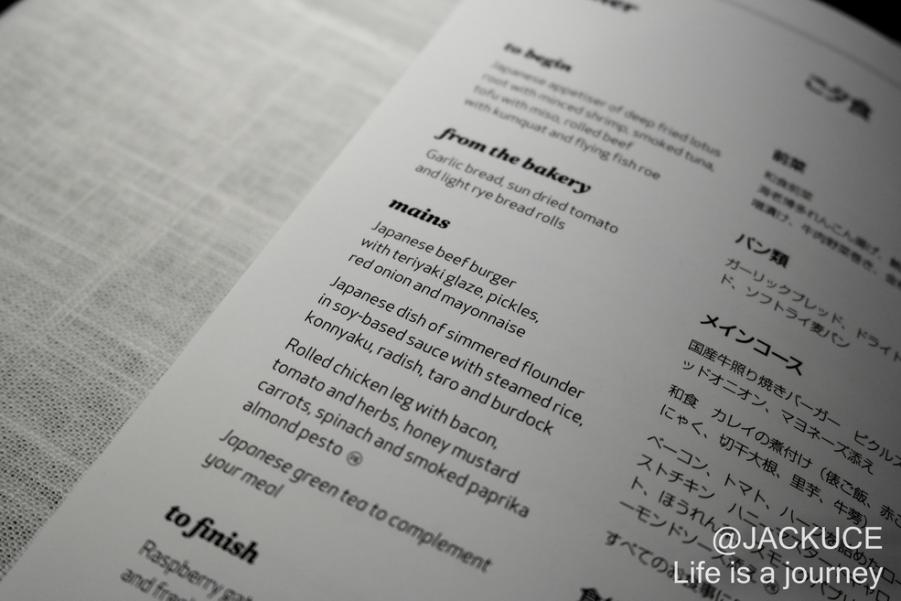 to begin
Japanese appetiser of deep fried lotus
root with minced shrimp, smoked tuna,
tofu with miso, rolled beef
with kumquat and flying fish roe
from the bakery
Garlic bread, sun dried tomato
and light rye bread rolls
mains
Japanese beef burger
with teriyaki glaze, pickles,
red onion and mayonnaise
Japanese dish of simmered flounder
in soy-based sauce with steamed rice,
konnyaku, radish, taro and burdock
Rolled chicken leg with bacon,
tomato and herbs, honey mustard
carrots, spinach and smoked paprika
almond pesto
Japanese green tea to complement
your meal
to finish
Raspberry
ご夕食
前菜
和食前菜
パン類
ガーリックブレッド、ドライト
ド、ソフトライ麦パン
メインコース
国産牛照り焼きバーガー ピクルス
ッドオニオン、マヨネーズ添え
和食 カレイの煮付け(俵ご飯、
にゃく、切干大根、里芋、牛蒡)
ベーコン、トマト、
ストチキン
ト、ほうれん
ーモンドソース
すべての
@JACKUCE
Life is a journey